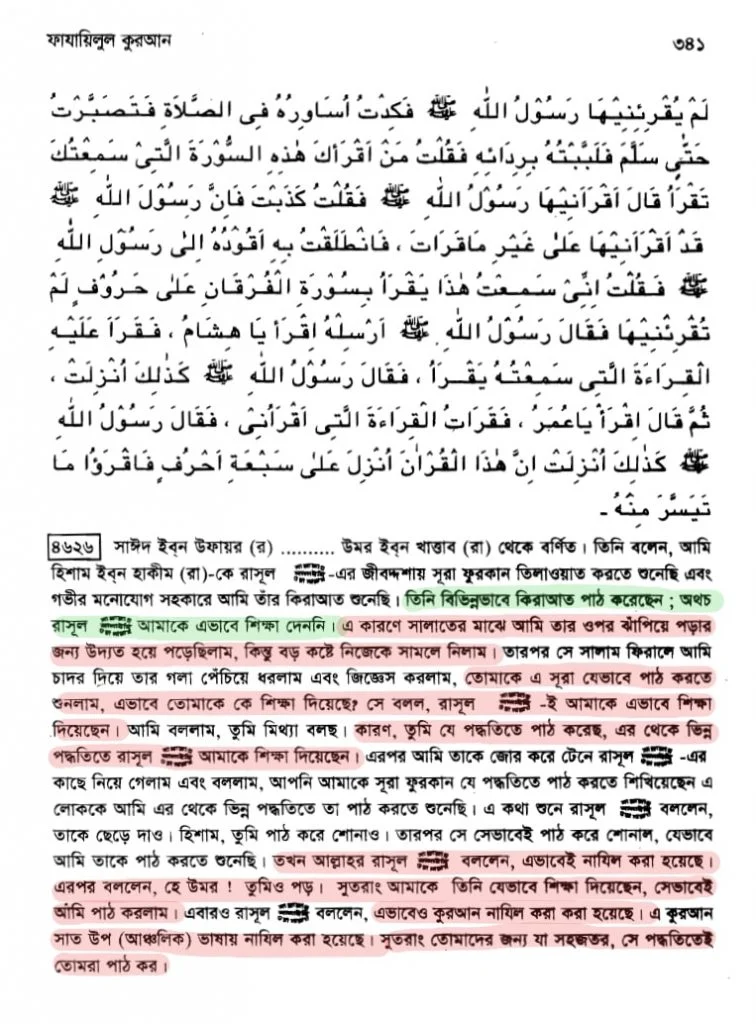 ফাযায়িলুল কুরআন ৩৪১
لَمْ يُقْرِئْنِيْهَا رَسُوْلُ اللّٰهِ ﷺ فَكِدْتُ اُسَاوِرُهُ فِى الصَّلَاةِ فَتَصَبَّرْتُ
حَتّٰى سَلَّمَ فَلَبَّبْتُهُ بِرِدَائِهِ فَقُلْتُ مَنْ اَقْرَأَكَ هٰذِهِ السُّوْرَةَ الَّتِىْ سَمِعْتُكَ
تَقْرَأُ قَالَ اَقْرَاَنِيْهَا رَسُوْلُ اللّٰهِ ﷺ فَقُلْتُ كَذَبْتَ فَاِنَّ رَسُوْلَ اللّٰهِ ﷺ
قَدْ اَقْرَاَنِيْهَا عَلٰى غَيْرِ مَاقَرَاتَ ، فَانْطَلَقْتُ بِهِ اَقُوْدُهُ اِلٰى رَسُوْلِ اللّٰهِ
ﷺ فَقُلْتُ اِنِّىْ سَمِعْتُ هٰذَا يَقْرَأُ بِسُوْرَةِ الْفُرْقَانِ عَلٰى حَرُوْفٍ لَمْ
تُقْرِئْنِيْهَا فَقَالَ رَسُوْلُ اللّٰهِ ﷺ اَرْسِلْهُ اِقْرَأْ يَا هِشَامُ ، فَقَرَأَ عَلَيْهِ
الْقِرَاءَةَ الَّتِى سَمِعْتُهُ يَقْرَأُ ، فَقَالَ رَسُوْلُ اللّٰهِ ﷺ كَذٰلِكَ اُنْزِلَتْ ،
ثُمَّ قَالَ اِقْرَأْ يَاعُمَرُ ، فَقَرَاتُ الْقِرَاءَةَ الَّتِى اَقْرَاَنِىْ ، فَقَالَ رَسُوْلُ اللّٰهِ
ﷺ كَذٰلِكَ اُنْزِلَتْ اِنَّ هٰذَا الْقُرْاٰنَ اُنْزِلَ عَلٰى سَبْعَةِ اَحْرُفٍ فَاقْرَؤُا مَا
تَيَسَّرَ مِنْهُ -
৪৬২৬ সাঈদ ইব্‌ন উফায়র (র) .......... উমর ইব্‌ন খাত্তাব (রা) থেকে বর্ণিত। তিনি বলেন, আমি
হিশাম ইব্‌ন হাকীম (রা)-কে রাসূল ﷺ -এর জীবদ্দশায় সূরা ফুরকান তিলাওয়াত করতে শুনেছি এবং
গভীর মনোযোগ সহকারে আমি তাঁর কিরাআত শুনেছি। তিনি বিভিন্নভাবে কিরাআত পাঠ করেছেন ; অথচ
রাসূল ﷺ আমাকে এভাবে শিক্ষা দেননি। এ কারণে সালাতের মাঝে আমি তার ওপর ঝাঁপিয়ে পড়ার
জন্য উদ্যত হয়ে পড়েছিলাম, কিন্তু বড় কষ্টে নিজেকে সামলে নিলাম। তারপর সে সালাম ফিরালে আমি
চাদর দিয়ে তার গলা পেঁচিয়ে ধরলাম এবং জিজ্ঞেস করলাম, তোমাকে এ সূরা যেভাবে পাঠ করতে
শুনলাম, এভাবে তোমাকে কে শিক্ষা দিয়েছে? সে বলল, রাসূল ﷺ -ই আমাকে এভাবে শিক্ষা
দিয়েছেন। আমি বললাম, তুমি মিথ্যা বলছ। কারণ, তুমি যে পদ্ধতিতে পাঠ করেছ, এর থেকে ভিন্ন
পদ্ধতিতে রাসূল ﷺ আমাকে শিক্ষা দিয়েছেন। এরপর আমি তাকে জোর করে টেনে রাসূল ﷺ -এর
কাছে নিয়ে গেলাম এবং বললাম, আপনি আমাকে সূরা ফুরকান যে পদ্ধতিতে পাঠ করতে শিখিয়েছেন এ
লোককে আমি এর থেকে ভিন্ন পদ্ধতিতে তা পাঠ করতে শুনেছি। এ কথা শুনে রাসূল ﷺ বললেন,
তাকে ছেড়ে দাও। হিশাম, তুমি পাঠ করে শোনাও। তারপর সে সেভাবেই পাঠ করে শোনাল, যেভাবে
আমি তাকে পাঠ করতে শুনেছি। তখন আল্লাহর রাসূল ﷺ বললেন, এভাবেই নাযিল করা হয়েছে।
এরপর বললেন, হে উমর ! তুমিও পড়। সুতরাং আমাকে তিনি যেভাবে শিক্ষা দিয়েছেন, সেভাবেই
আমি পাঠ করলাম। এবারও রাসূল ﷺ বললেন, এভাবেও কুরআন নাযিল করা করা হয়েছে। এ কুরআন
সাত উপ (আঞ্চলিক) ভাষায় নাযিল করা হয়েছে। সুতরাং তোমাদের জন্য যা সহজতর, সে পদ্ধতিতেই
তোমরা পাঠ কর।